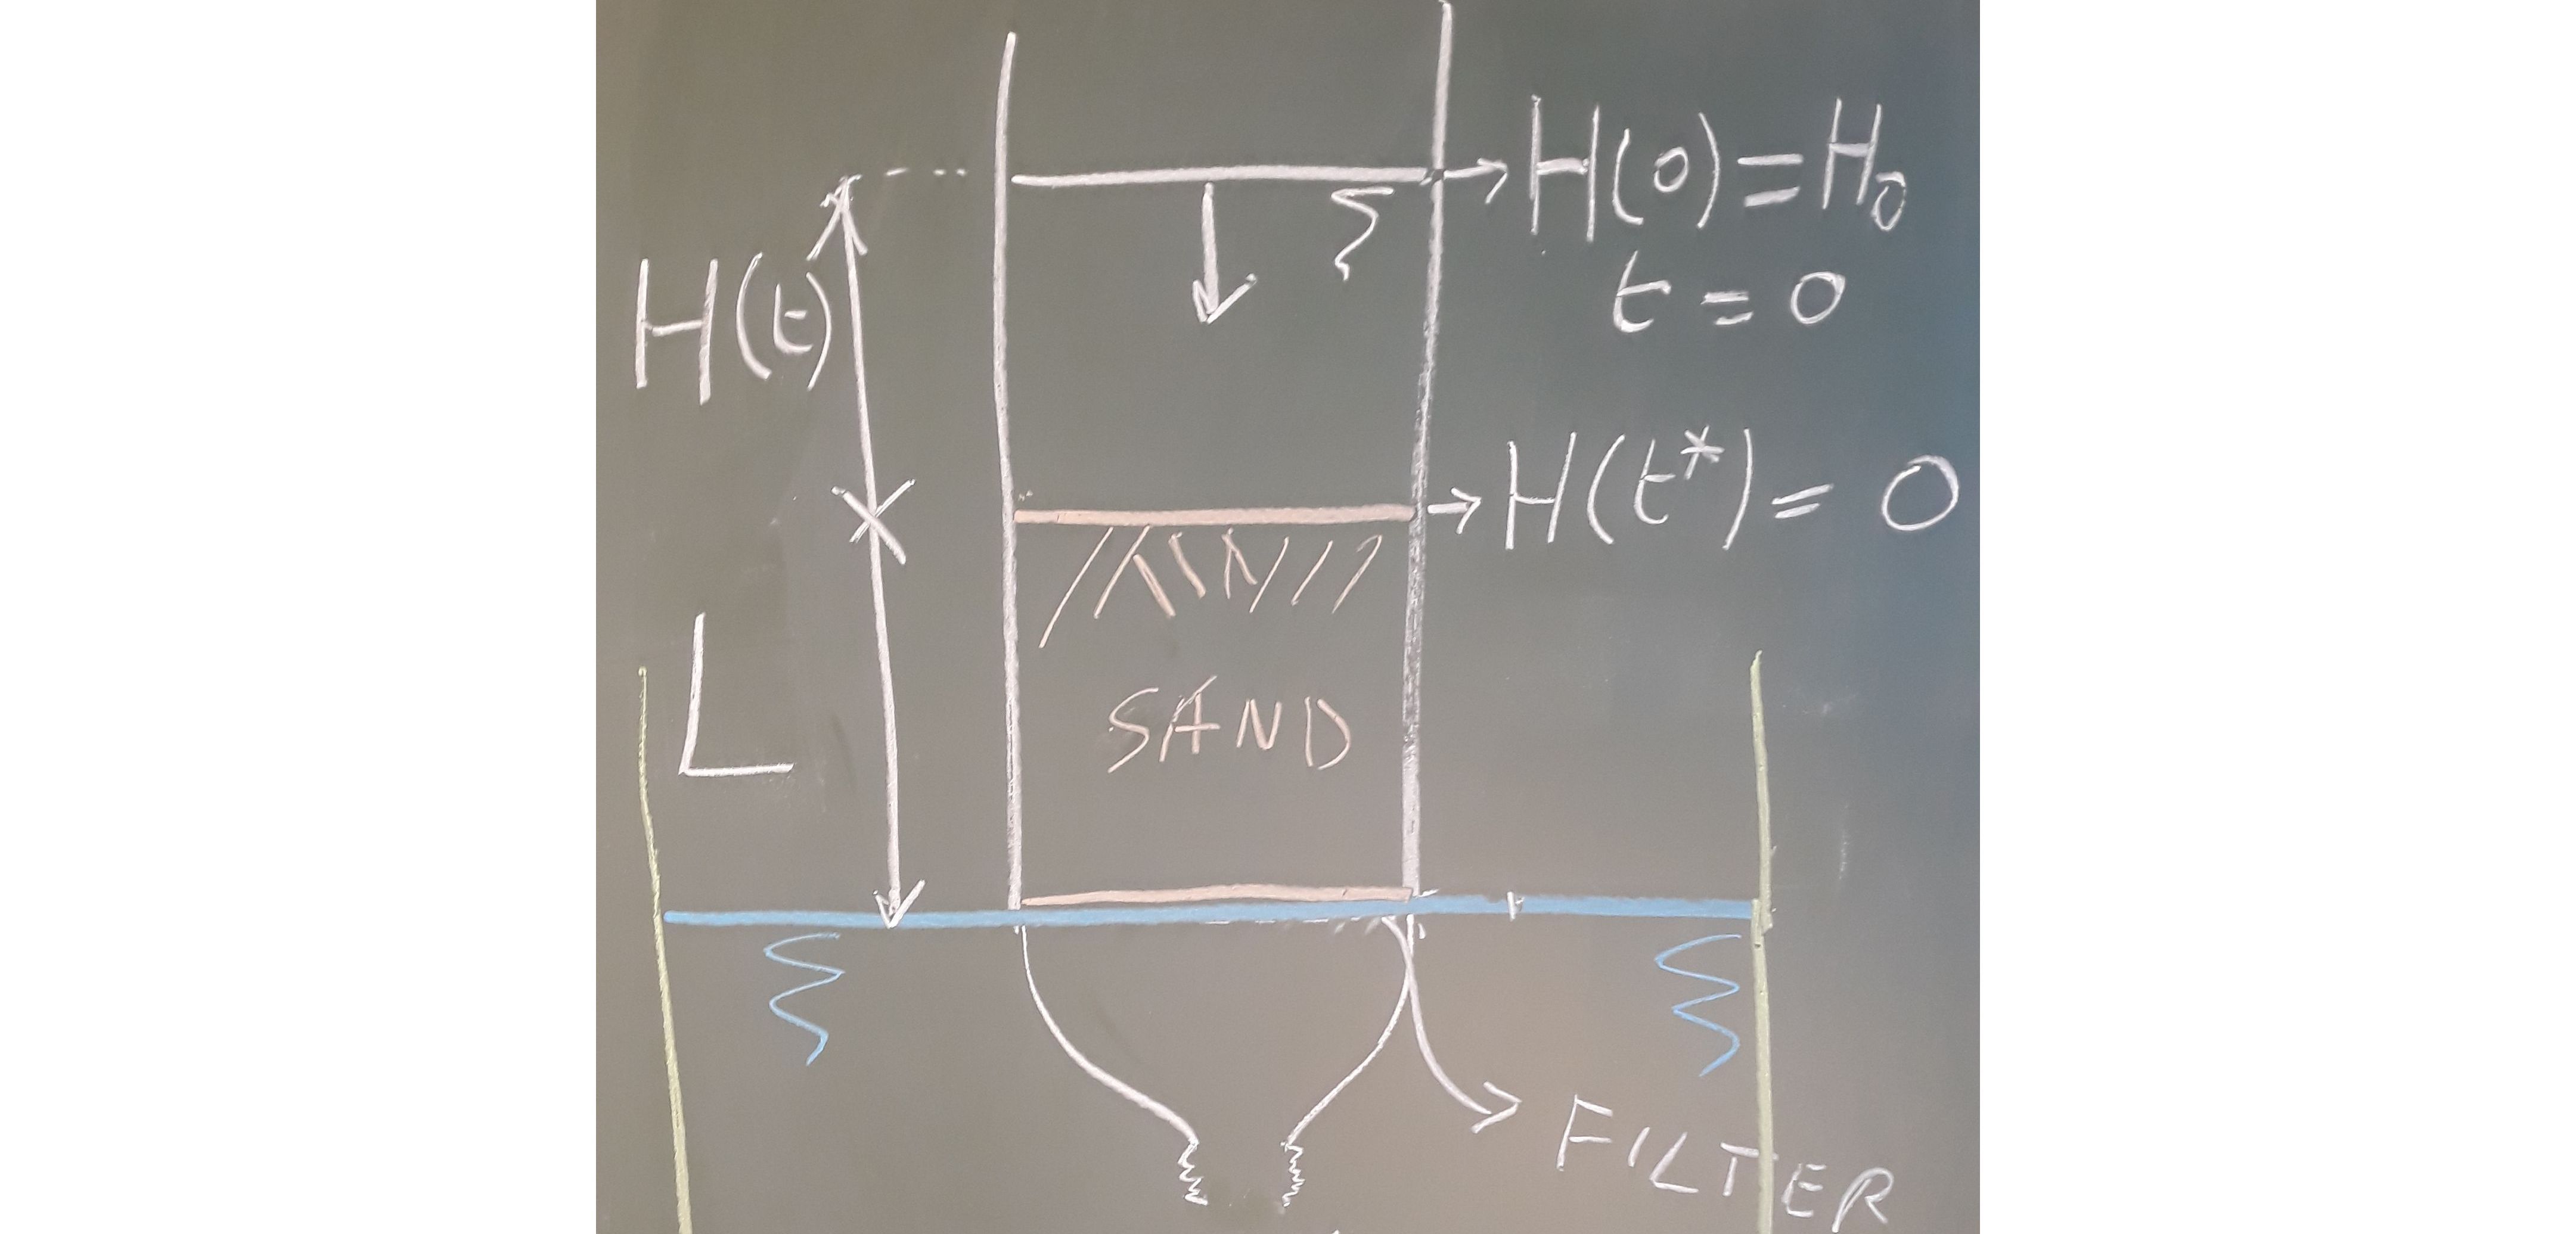 H(0) = H₀
t = 0
H(t)
H(t*) = 0
L
SAND
FILTER